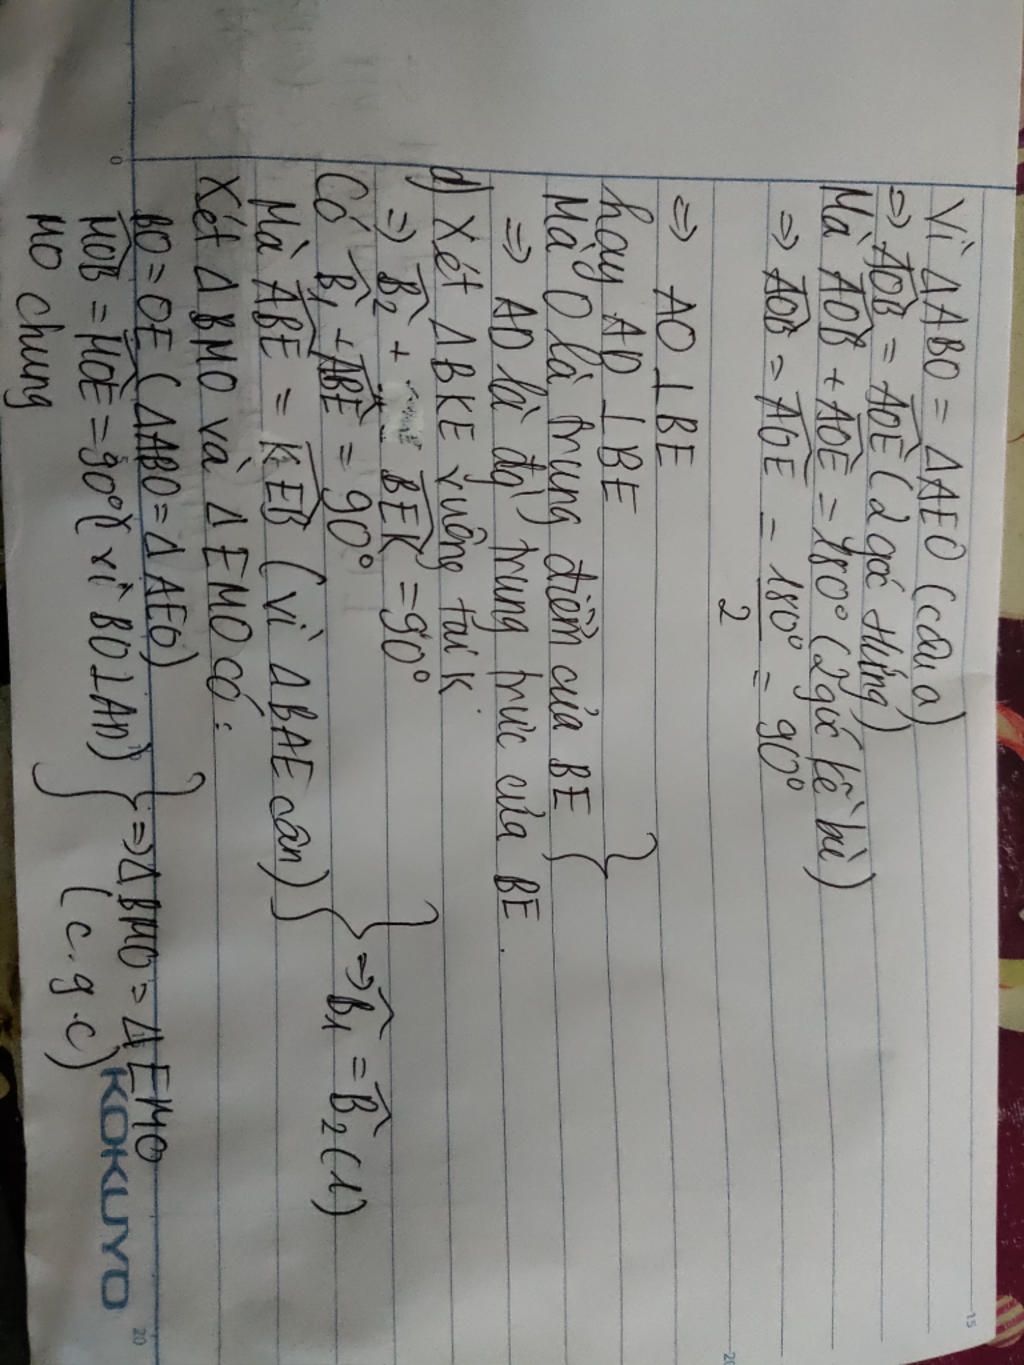 Vì ΔABO = ΔAEO (câu a)
⇒ \widehat{AOB} = \widehat{AOE} (2 góc tương ứng)
Mà \widehat{AOB} + \widehat{AOE} = 180° (2 góc kề bù)
⇒ \widehat{AOB} = \widehat{AOE} = \frac{180°}{2} = 90°
⇒ AO ⊥ BE
hay AD ⊥ BE
Mà O là trung điểm của BE }
⇒ AD là đg trung trực của BE.
d) Xét ΔBKE vuông tại K
⇒ \widehat{B_2} + \widehat{BEK} = 90°
Có \widehat{B_1} + \widehat{ABE} = 90° } ⇒ \widehat{B_1} = \widehat{B_2} (1)
Mà \widehat{ABE} = \widehat{KEB} (vì ΔBAE cân)
Xét ΔBMO và ΔEMO có:
BO = OE (ΔABO = ΔAEO)
\widehat{MOB} = \widehat{MOE} = 90° (vì BO⊥AD) } ⇒ ΔBMO = ΔEMO
MO chung (c.g.c)
KOKUYO
0
15
20
20